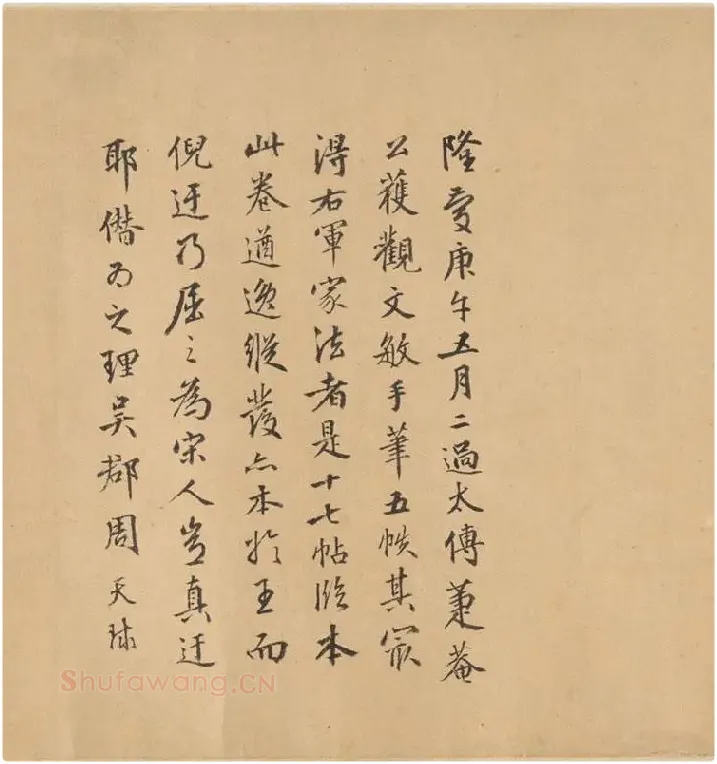 隆慶庚午五月二過太傅蒹菴
公蓰觀文敏手筆五帙其冣
得右軍家法者是十七帖臨本
此卷遒逸縱發亦本於王而
倪迂乃屈之為宋人豈真迂
耶僭為之理吳郡周天球
Shufawang.CN